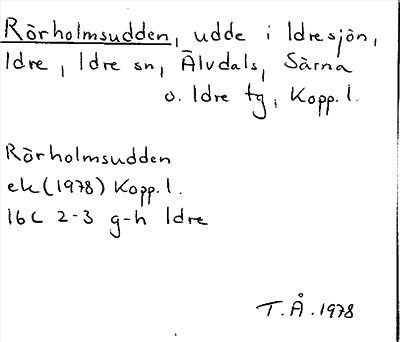 Rörholmsudden, udde i Idresjön,
Idre, Idre sn, Älvdals, Särna
o. Idre tg, Kopp. l.
Rörholmsudden
ek (1978) Kopp. l.
16C 2-3 g-h Idre
T. Å. 1978